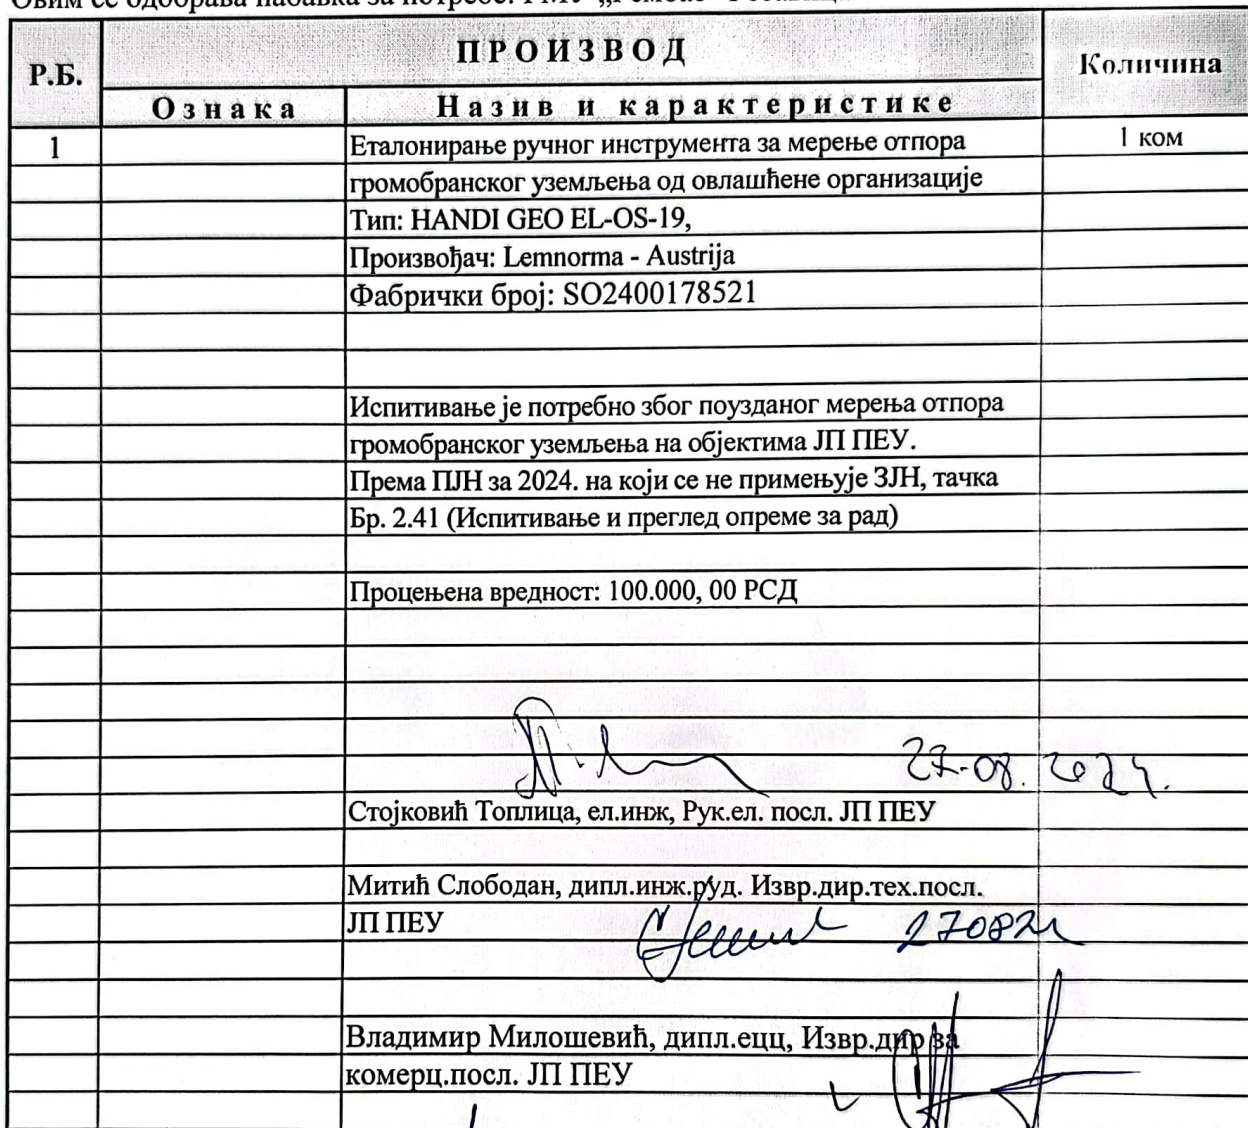 Овим се одобрава набавка за потребе: РМУ
ПРОИЗВОД
Р.Б.
Количина
Ознака Назив и карактеристике
1 Еталонирање ручног инструмента за мерење отпора 1 ком
громобранског уземљења од овлашћене организације
Тип: HANDI GEO EL-OS-19,
Произвођач: Lemnorma - Austrija
Фабрички број: SO2400178521
Испитивање је потребно због поузданог мерења отпора
громобранског уземљења на објектима ЈП ПЕУ.
Према ПЈН за 2024. на који се не примењује ЗЈН, тачка
Бр. 2.41 (Испитивање и преглед опреме за рад)
Процењена вредност: 100.000, 00 РСД
27-08. 2024.
Стојковић Топлица, ел.инж, Рук.ел. посл. ЈП ПЕУ
Митић Слободан, дипл.инж.руд. Извр.дир.тех.посл.
ЈП ПЕУ 270824
Владимир Милошевић, дипл.ецц, Извр.дир за
комерц.посл. ЈП ПЕУ